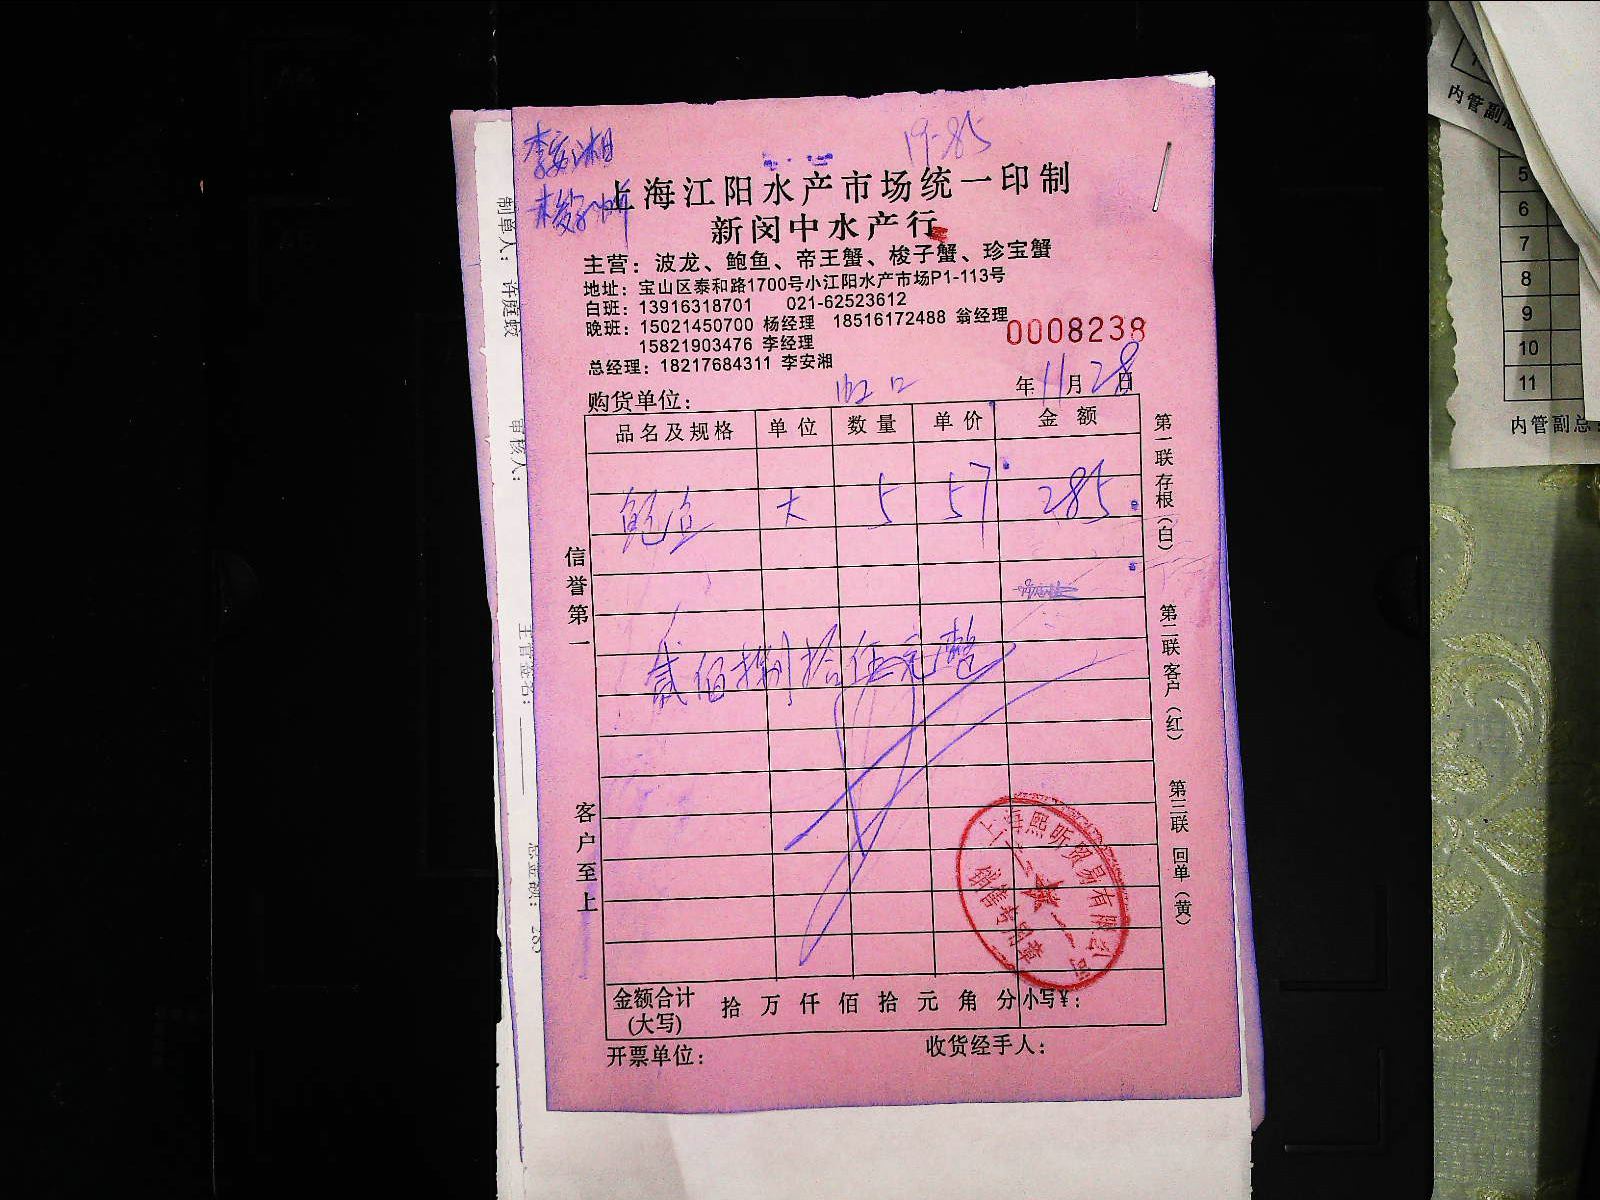 李安湘
19-85
上海江阳水产市场统一印制
新闵中水产行
主营：波龙、鲍鱼、帝王蟹、梭子蟹、珍宝蟹
地址：宝山区泰和路1700号小江阳水产市场P1-113号
白班：13916318701 021-62523612
晚班：15021450700 杨经理 18516172488 翁经理
15821903476 李经理
总经理：18217684311 李安湘
0008238
购货单位： 虹口 年11月28日
品名及规格 单位 数量 单价 金额
鲍鱼 大 5 57 285
贰佰捌拾伍元整
金额合计(大写) 拾 万 仟 佰 拾 元 角 分 小写￥：
开票单位： 收货经手人：
信誉第一
客户至上
第一联 存根（白）
第二联 客户（红）
第三联 回单（黄）
上海熙昕贸易有限公司
销售专用章
制单人： 许庭蛟
审核人：
主管签名：
总金额： 285
内管副总
5
6
7
8
9
10
11
内管副总：